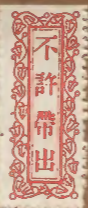 不許帶出